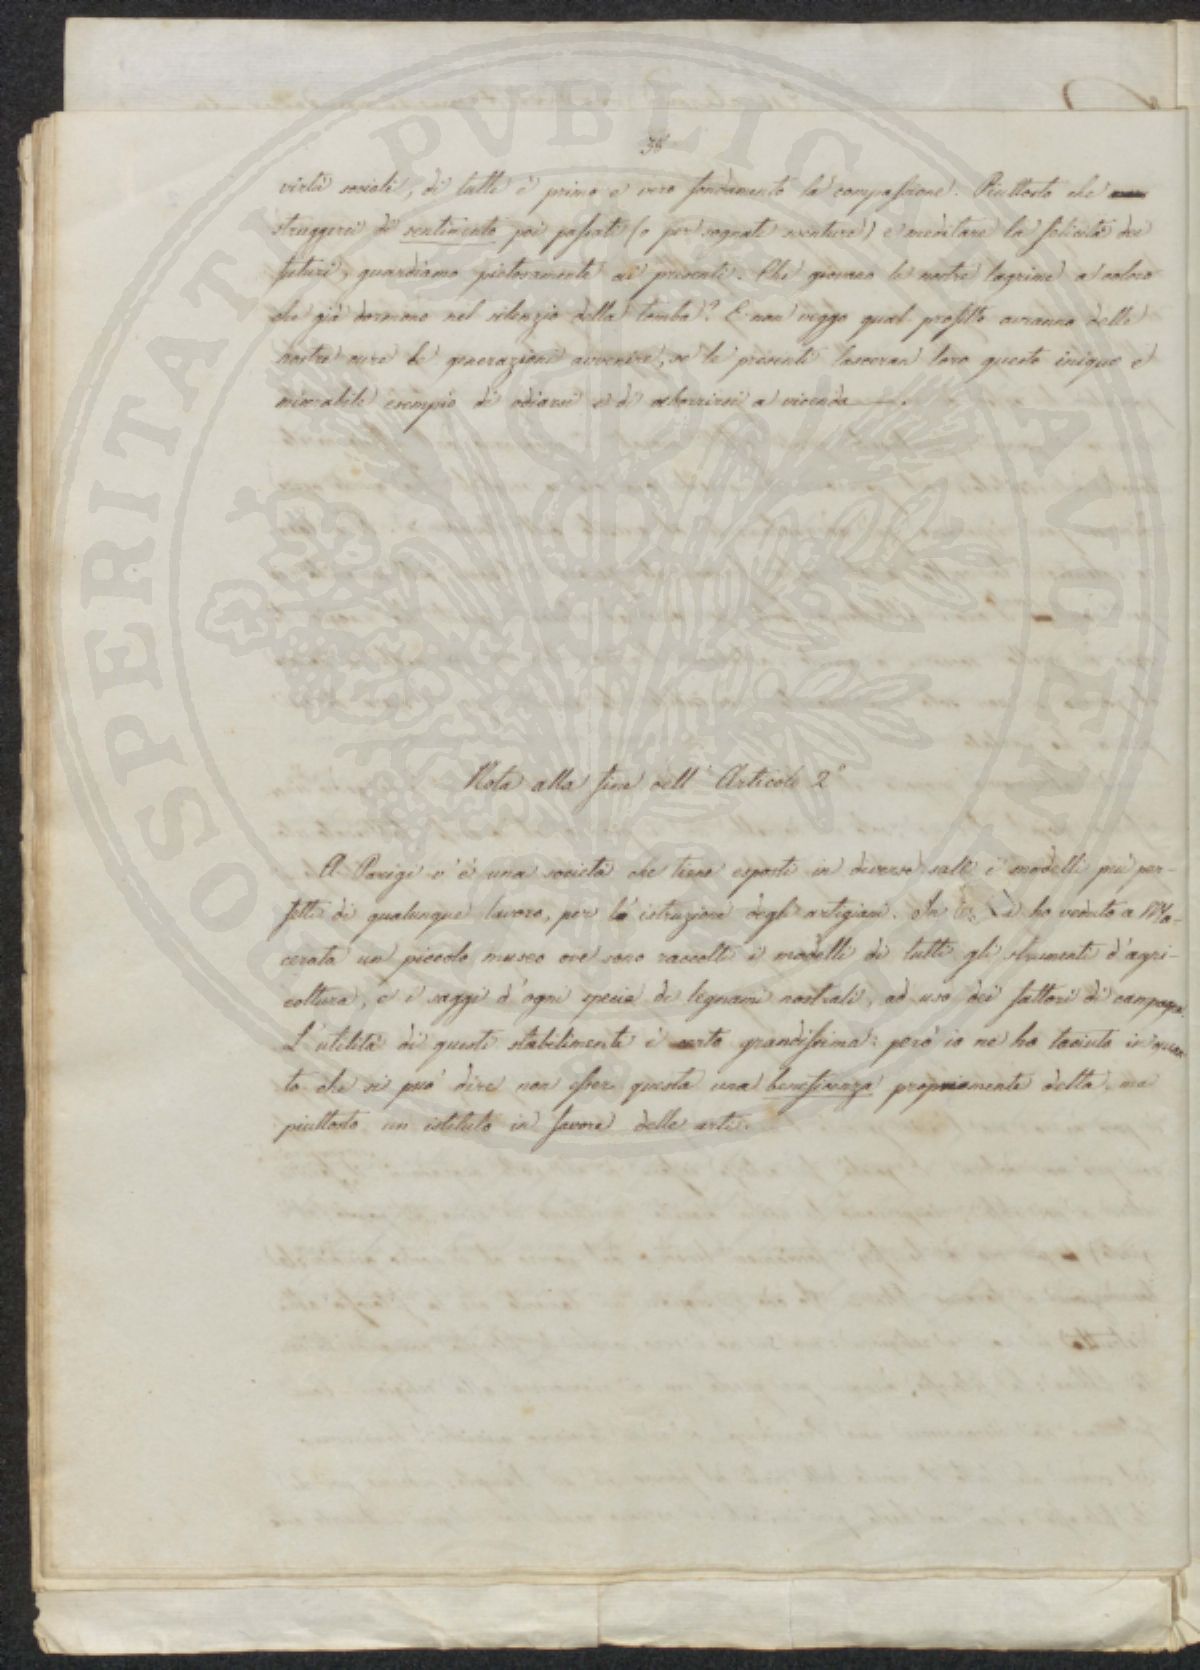 38
virtù sociali, di tutte è primo e vero fondamento la compassione. Piuttosto che
struggerci di sentimento poi passati (o per sognate sventure) e meditare la felicità dei
futuri, guardiamo pietosamente ai presenti. Che giovano le nostre lagrime a coloro
che già dormono nel silenzio della tomba? E non veggo qual profitto avranno delle
nostre cure le generazioni avvenire, se le presenti lasceran loro questo iniquo e
miserabile esempio di odiarsi e di abborrirsi a vicenda
Nota alla fine dell'Articolo 2°
A Parigi v'è una società che tiene esposti in diverse sale i modelli più per-
fetti di qualunque lavoro, per la istruzione degli artigiani. In ho veduto a Ma-
cerata un piccolo museo ove sono raccolti i modelli di tutti gli strumenti d'agri-
coltura, e i saggi d'ogni specie di legnami nostrali, ad uso dei fattori di campagna.
L'utilità di questi stabilimenti è certo grandissima: però io ne ho taciuto in quan-
to che si può dire non esser questa una beneficenza propriamente detta, ma
piuttosto un istituto in favore delle arti.
PROSPERITATI PVBLICAE AVGENDAE